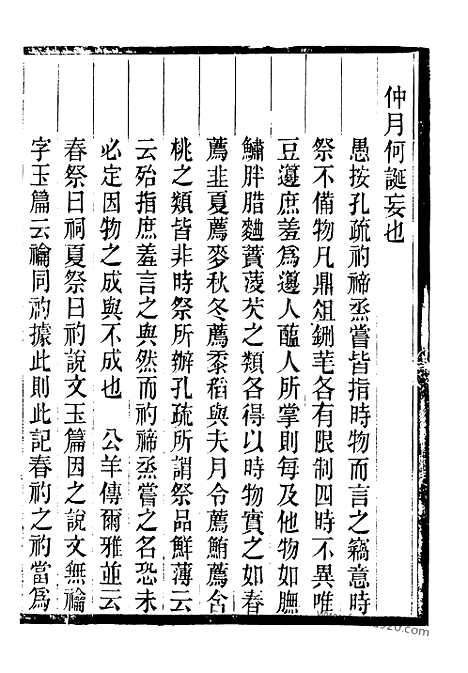 仲月何誕妄也
愚按孔疏礿禘烝嘗皆指時物而言之竊意時
祭不備物凡鼎俎鉶芼各有限制四時不異唯
豆籩庶羞爲籩人醢人所掌則每及他物如膴
鱐胖腊麷蕡菱芡之類各得以時物實之如春
薦韭夏薦麥秋冬薦黍稻與夫月令薦鮪薦含
桃之類皆非時祭所辦孔疏所謂祭品鮮薄云
云殆指庶羞言之與然而礿禘烝嘗之名恐未
必定因物之成與不成也　公羊傳爾雅並云
春祭曰祠夏祭曰礿說文玉篇因之說文無禴
字玉篇云禴同礿據此則此記春礿之礿當爲